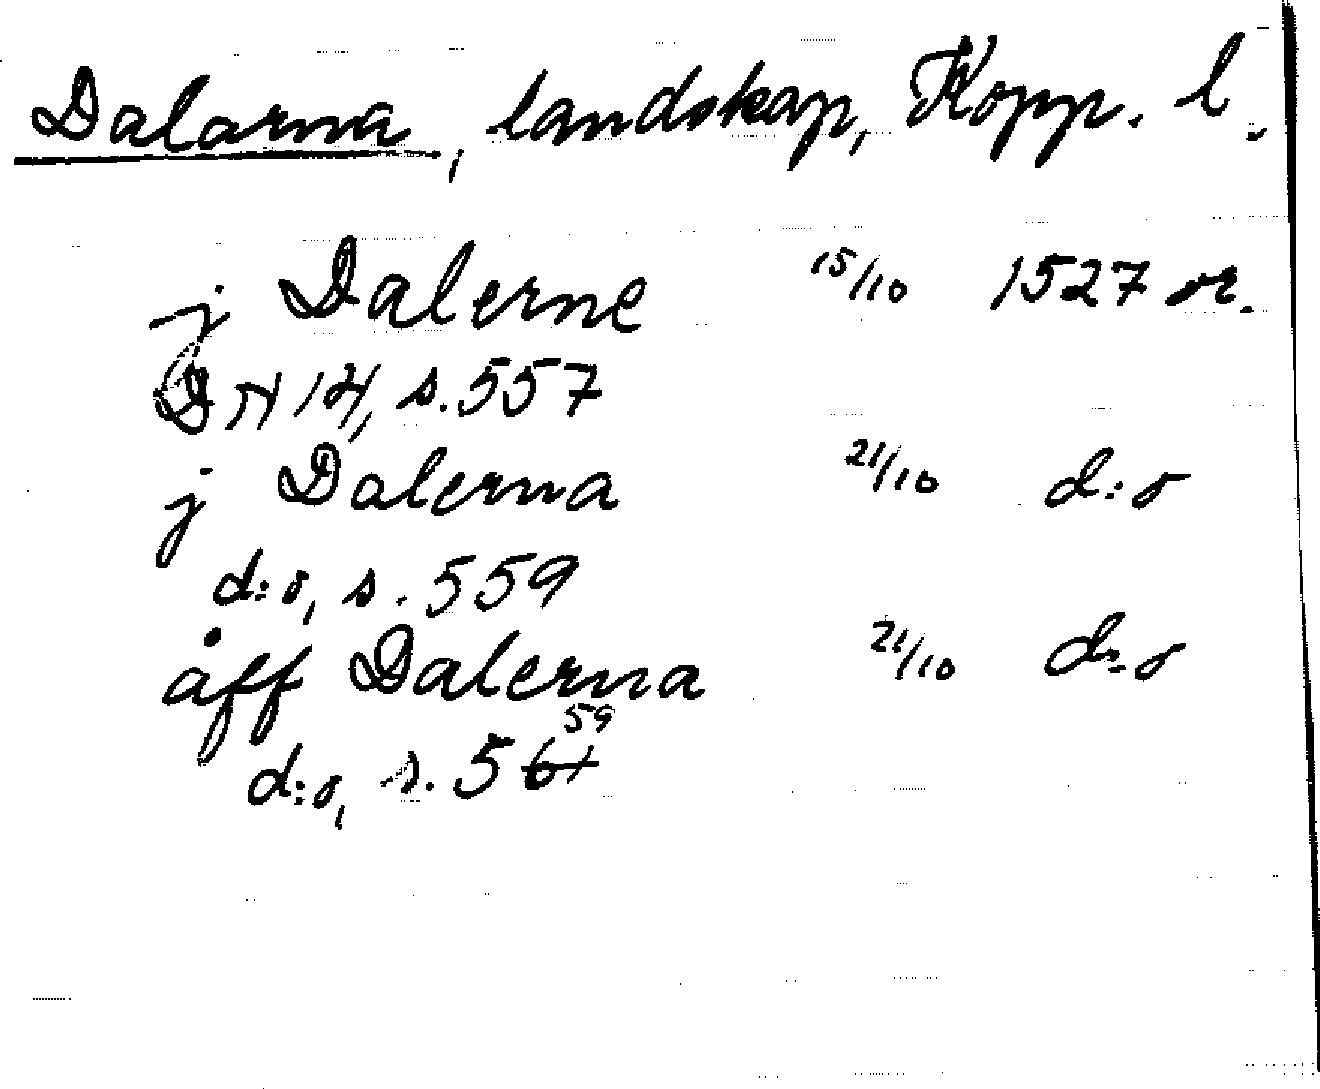 Dalarna, landskap, Kopp. l.
j Dalerne 15/10 1527 or.
DN 14, s. 557
j Dalerna 21/10 d:o
d:o, s. 559
åff Dalerna 21/10 d:o
d:o, s. 561 59